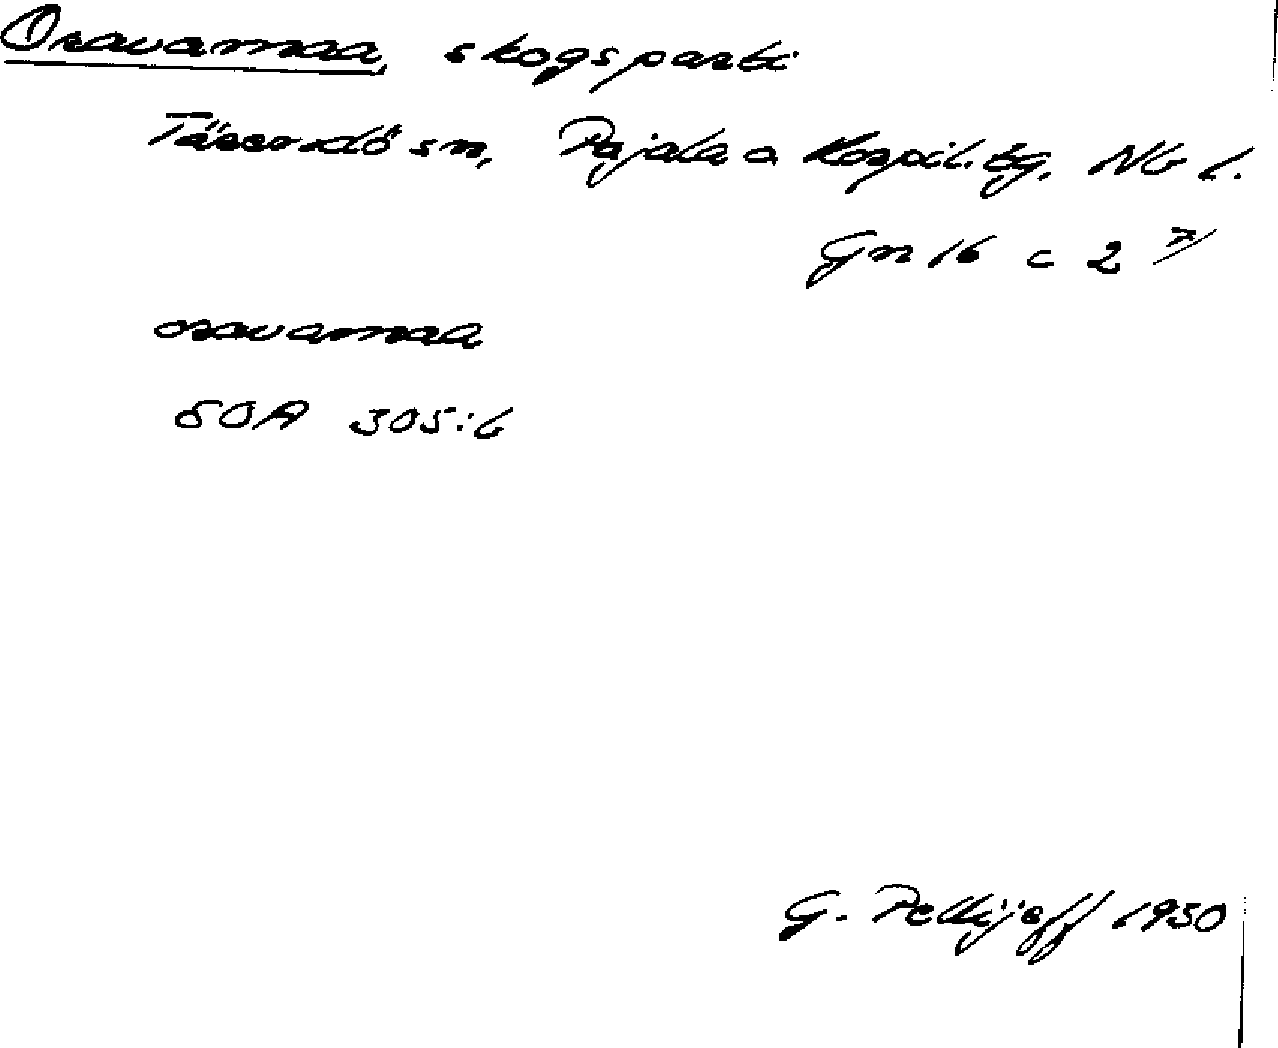 Oravamaa, skogsparti
Tärendö sn, Pajala o Korpil. tg. Nb l.
Gn 16 c 2
oravamaa
SOA 305:6
G. Pellijeff 1950